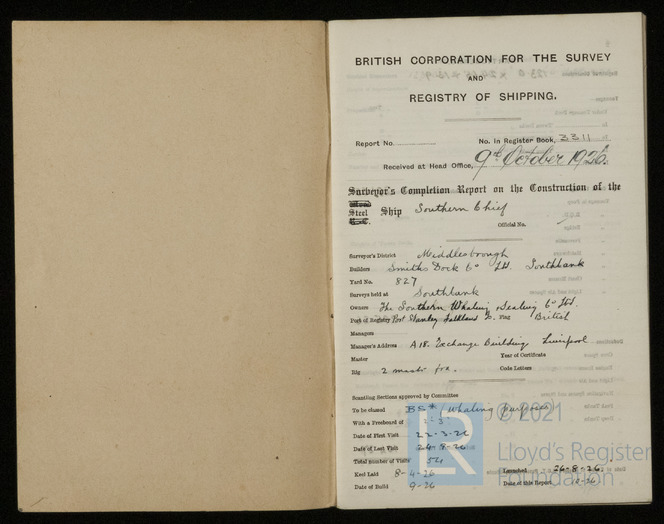 BRITISH CORPORATION FOR THE SURVEY
AND
REGISTRY OF SHIPPING.
Report No. No. in Register Book, 3311
Received at Head Office, 9th October 1926.
Surveyor's Completion Report on the Construction of the
Steel Ship Southern Chief
Official No.
Surveyor's District Middlesborough
Builders Smiths Dock Co Ltd. Southbank
Yard No. 827
Surveys held at Southbank
Owners The Southern Whaling & Sealing Co Ltd.
Port of Registry Port Stanley Falkland Is. Flag British
Managers
Manager's Address A18. Exchange Building Liverpool
Master Year of Certificate
Rig 2 mast Code Letters
Scantling Sections approved by Committee
To be classed BS* Whaling purposes
With a Freeboard of
Date of First Visit 22-3-26
Date of Last Visit 24-9-26
Total number of Visits 54
Keel Laid 8-4-26 Launched 26-8-26.
Date of Build 9-26 Date of this Report
© 2021
LR
Lloyd's Register
Foundation